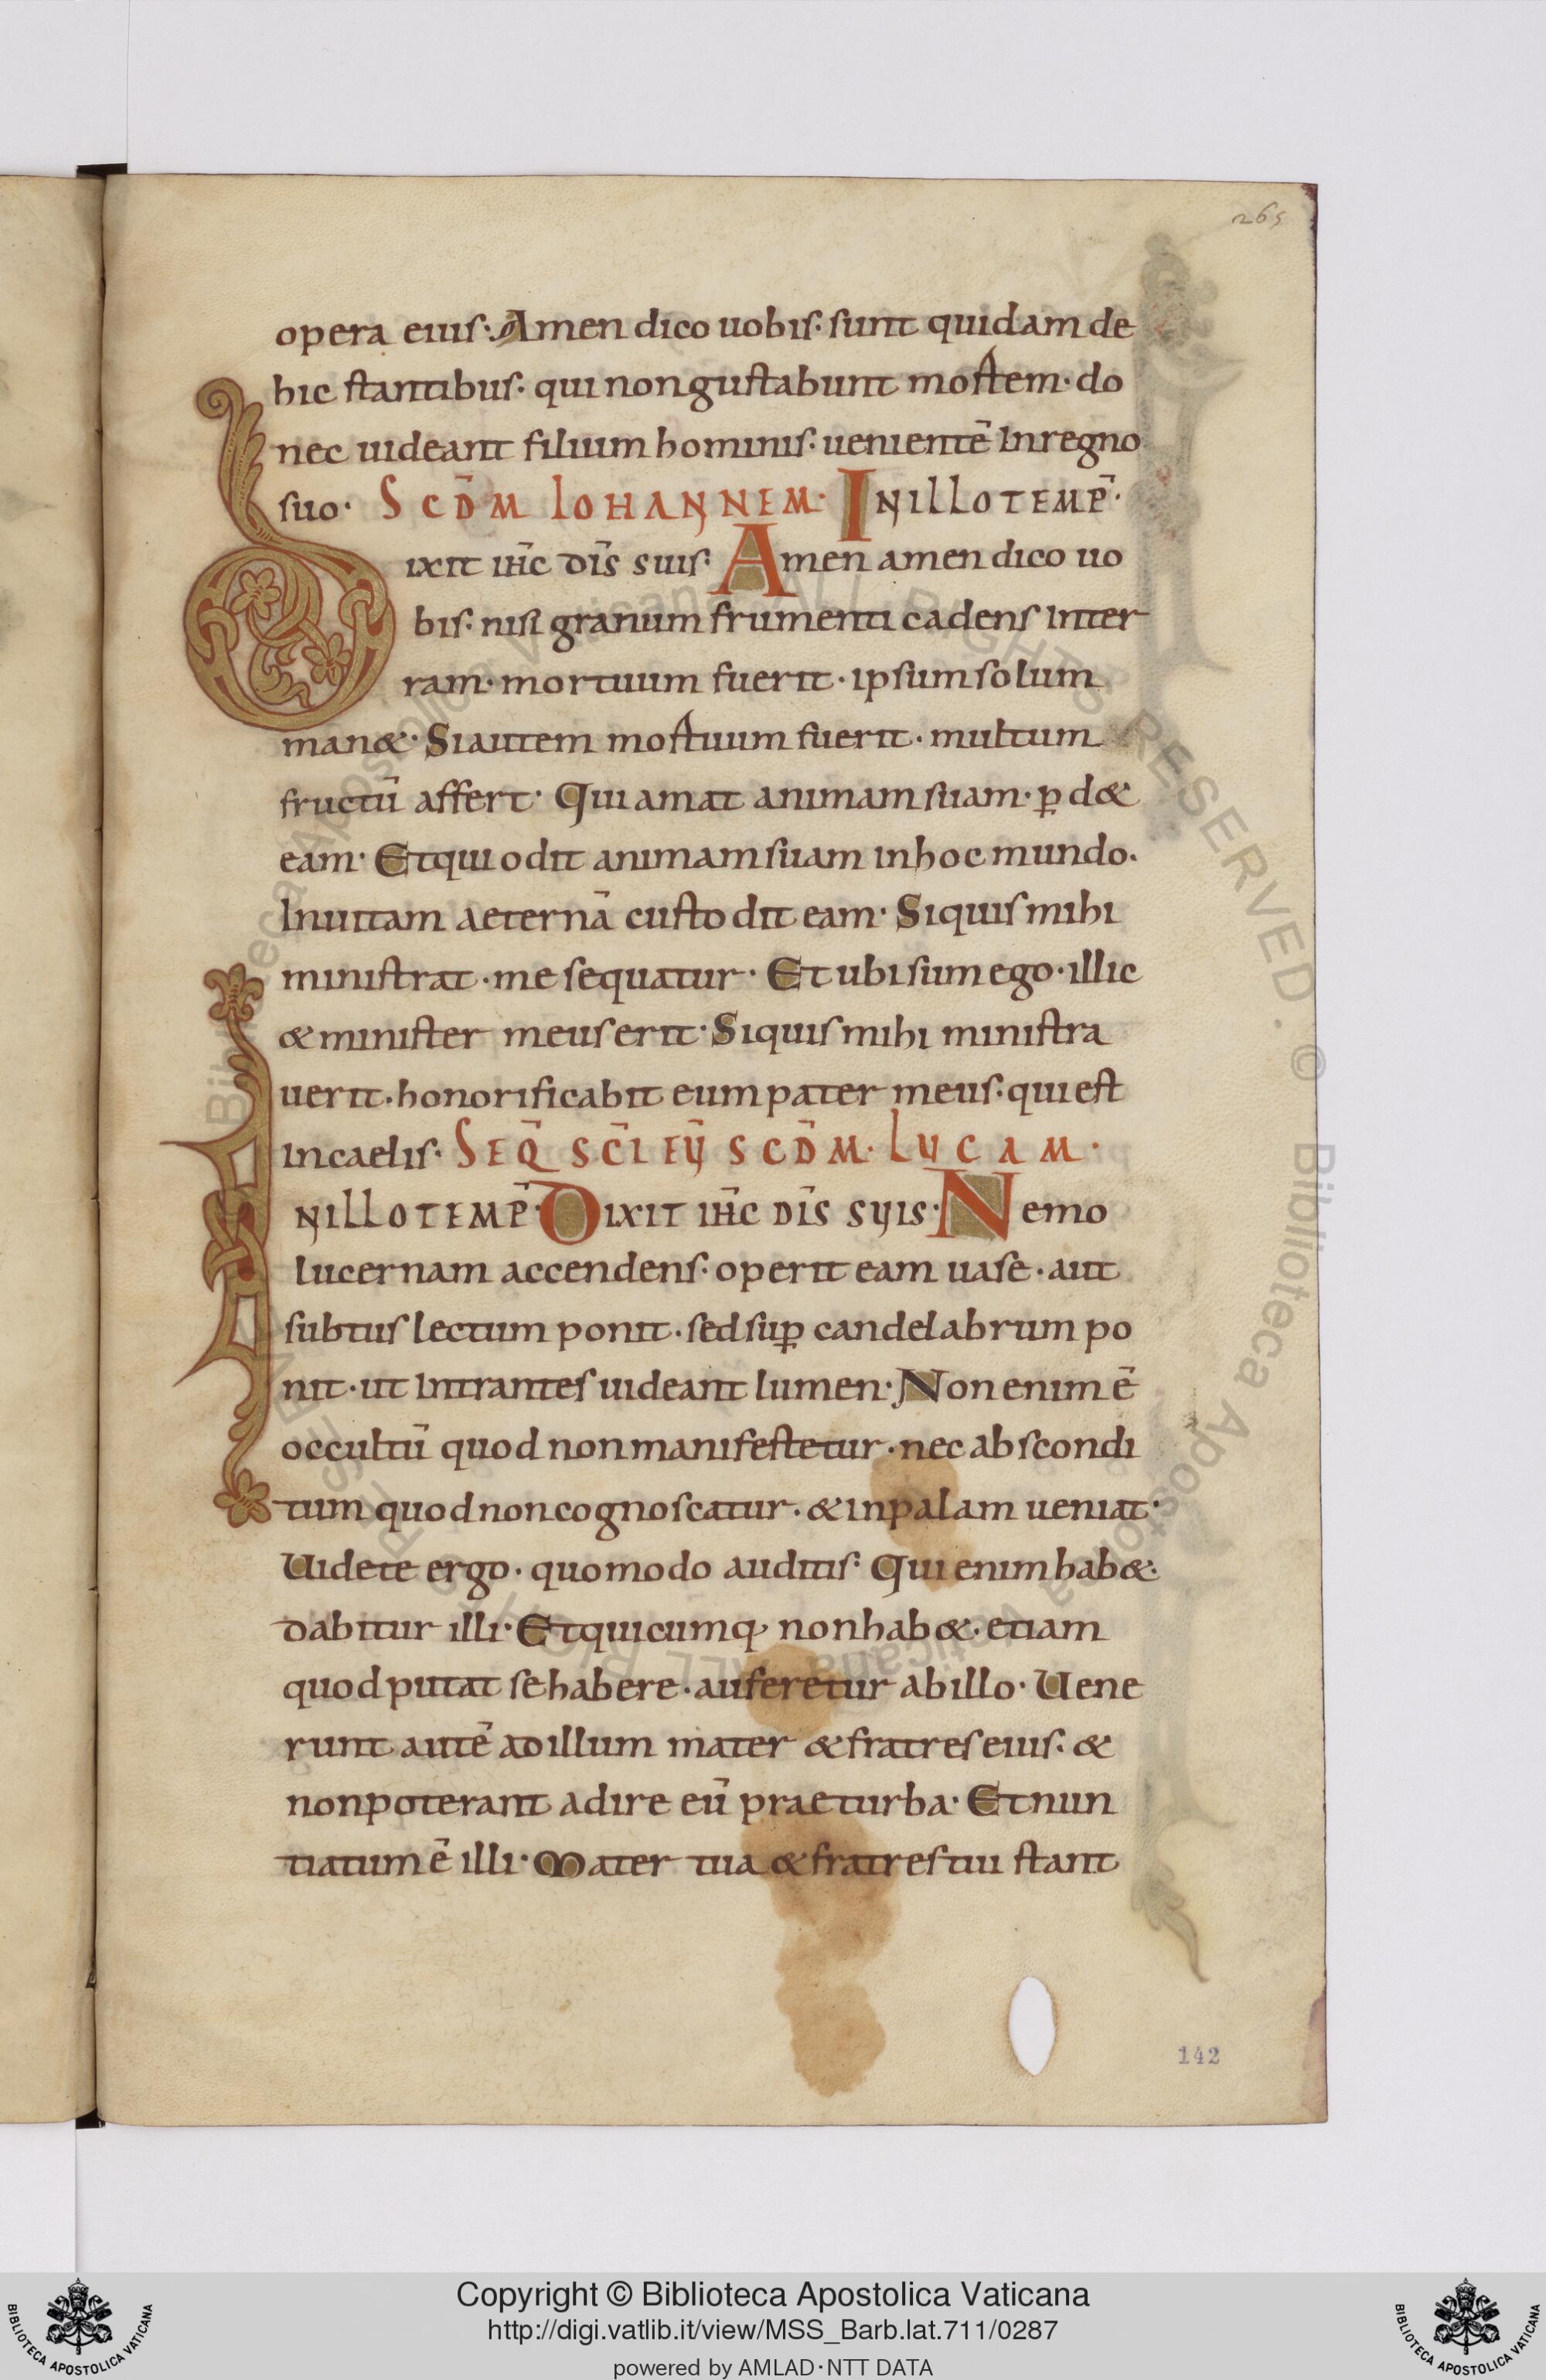 265
opera eius. Amen dico uobis. sunt quidam de
hic stantibus. qui non gustabunt mortem. do
nec uideant filium hominis. uenientē In regno
suo. SCD̄M IOHANNEM. IN ILLO TEMP̄.
DIXIT IH̄C DIS̄ SUIS. Amen amen dico uo
bis. nisi granum frumenti cadens Inter
ram. mortuum fuerit. ipsum solum
man&. Si autem mortuum fuerit. multum
fructū affert. Qui amat animam suam. ꝑd&
eam. Et qui odit animam suam in hoc mundo.
In uitam aeternā custodit eam. Si quis mihi
ministrat. me sequatur. Et ubi sum ego. illic
& minister meus erit. Si quis mihi ministra
uerit. honorificabit eum pater meus. qui est
In caelis. SEQ̄ SC̄I EŪ SCD̄M. LUCAM.
IN ILLO TEMP̄. DIXIT IH̄C DIS̄ SUIS. Nemo
lucernam accendens. operit eam uase. aut
subtus lectum ponit. sed suꝑ candelabrum po
nit. ut Intrantes uideant lumen. Non enim ē
occultū quod non manifestetur. nec abscondi
tum quod non cognoscatur. & in palam ueniat.
Uidete ergo. quomodo auditis. Qui enim hab&.
dabitur illi. Et quicumq; non hab&. etiam
quod putat se habere. auferetur ab illo. Uene
runt autē ad illum mater & fratres eius. &
non poterant adire eū prae turba. Et nun
tiatum ē illi. Mater tua & fratres tui stant
142
Biblioteca Apostolica Vaticana ALL RIGHTS RESERVED. © Biblioteca Apostolica Vaticana ALL RIGHTS RESERVED. ©
Copyright © Biblioteca Apostolica Vaticana
http://digi.vatlib.it/view/MSS_Barb.lat.711/0287
powered by AMLAD·NTT DATA
BIBLIOTECA APOSTOLICA VATICANA
BIBLIOTECA APOSTOLICA VATICANA